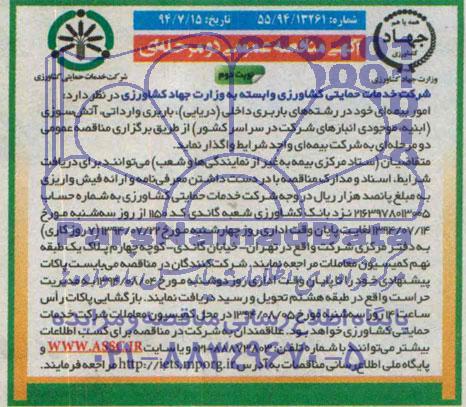 شماره: ۵۵/۹۴/۱۳۲۶۱
تاریخ: ۹۴/۷/۱۵
آگهی مناقصه عمومی دو مرحله‌ای
نوبت دوم
همه با هم
جهاد
کشاورزی
وزارت جهاد کشاورزی
شرکت خدمات حمایتی کشاورزی
شرکت خدمات حمایتی کشاورزی وابسته به وزارت جهاد کشاورزی در نظر دارد:
امور بیمه‌ای خود در رشته‌های باربری داخلی (دریایی)، باربری وارداتی، آتش‌سوزی
(ابنیه، موجودی انبارهای شرکت در سراسر کشور) از طریق برگزاری مناقصه عمومی
دو مرحله‌ای به شرکت بیمه‌ای واجد شرایط واگذار نماید.
متقاضیان (ستاد مرکزی بیمه به غیر از نمایندگی‌ها و شعب) می‌توانند برای دریافت
شرایط، اسناد و مدارک مناقصه با در دست داشتن معرفی نامه و ارائه فیش واریزی
به مبلغ پانصد هزار ریال در وجه شرکت خدمات حمایتی کشاورزی به شماره حساب
نزد بانک کشاورزی شعبه گاندی کد ۱۱۵ از روز سه‌شنبه مورخ
۱۳۹۴/۰۷/۱۴ لغایت پایان وقت اداری روز چهارشنبه مورخ ۱۳۹۴/۰۷/۲۲ (۷ روز کاری)
به دفتر مرکزی شرکت واقع در تهران – خیابان گاندی – کوچه چهارم پلاک یک طبقه
نهم کمیسیون معاملات مراجعه نمایند. شرکت‌کنندگان در مناقصه می‌بایست پاکات
پیشنهادی خود را تا پایان وقت اداری روز دوشنبه مورخ ۱۳۹۴/۰۸/۰۴ به مدیریت
حراست واقع در طبقه هشتم تحویل و رسید دریافت نمایند. بازگشایی پاکات رأس
ساعت ۱۴ روز سه‌شنبه مورخ ۱۳۹۴/۰۸/۰۵ در محل کمیسیون معاملات شرکت خدمات
حمایتی کشاورزی خواهد بود. علاقمندان به شرکت در مناقصه برای کسب اطلاعات
بیشتر می‌توانند با شماره تلفن: و یا سایت WWW.ASSC.IR و
پایگاه ملی اطلاع رسانی مناقصات به آدرس http://iets.mporg.ir مراجعه فرمایند.